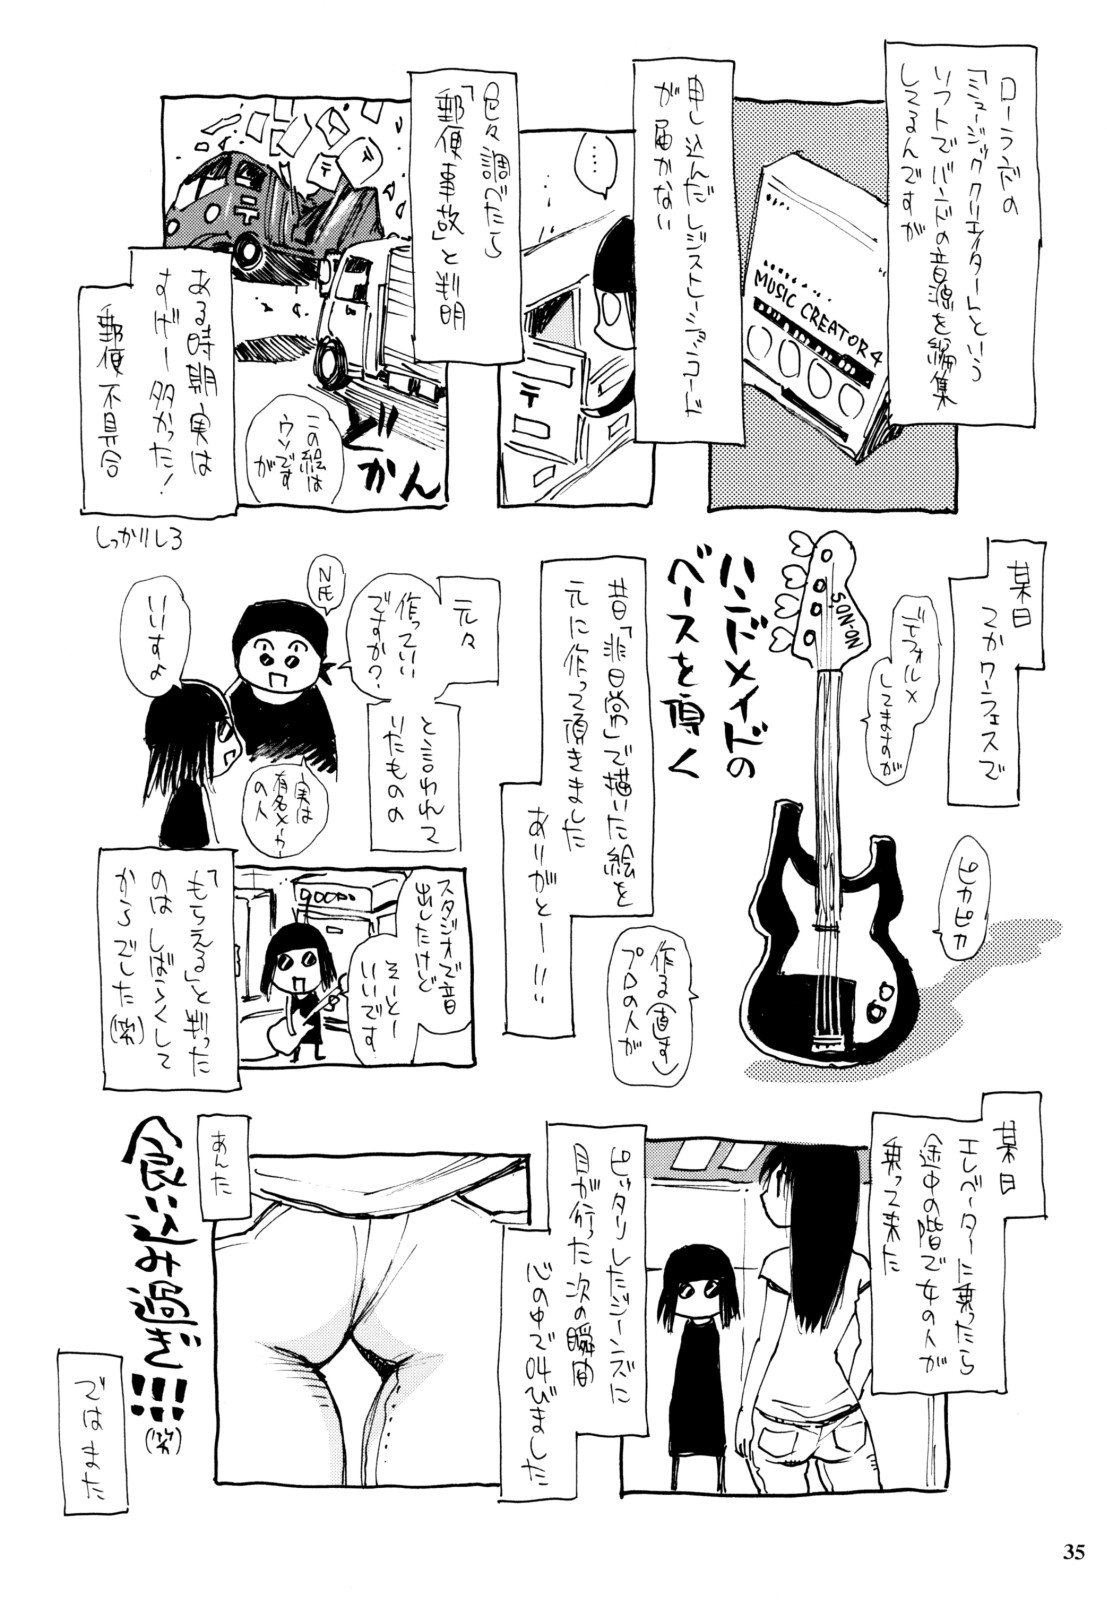 ローランドの
「ミュージッククリエイター」という
ソフトでバンドの音源を編集
してるんですが
MUSIC CREATOR 4
申し込んだレジストレーションコード
が届かない
…
色々調べたら
「郵便事故」と判明
〒
どかん
この絵は
ウソです
が
ある時期実は
すげー多かった!
郵便不具合
しっかりしろ
某日
ワカワフェスで
デフォルメ
してますのが
SON-ON
ピカピカ
ハンドメイドの
ベースを頂く
昔「非日常」で描いた絵を
元に作って頂きました
ありがとー!!
作る(直す)
プロの人が
元々
作っていい
ですか?
N氏
いいすよ
と言われて
いたものの
実は
有名メーカー
の人
スタジオで音
出したけど
そーとー
いいです
「もらえる」と判った
のはしばらくして
からでした(笑)
某日
エレベーターに乗ったら
途中の階で女の人が
乗って来た
ピッタリしたジーンズに
目が行った次の瞬間
心の中で叫びました
あんた
食い込み過ぎ!!!
(笑)
ではまた
35